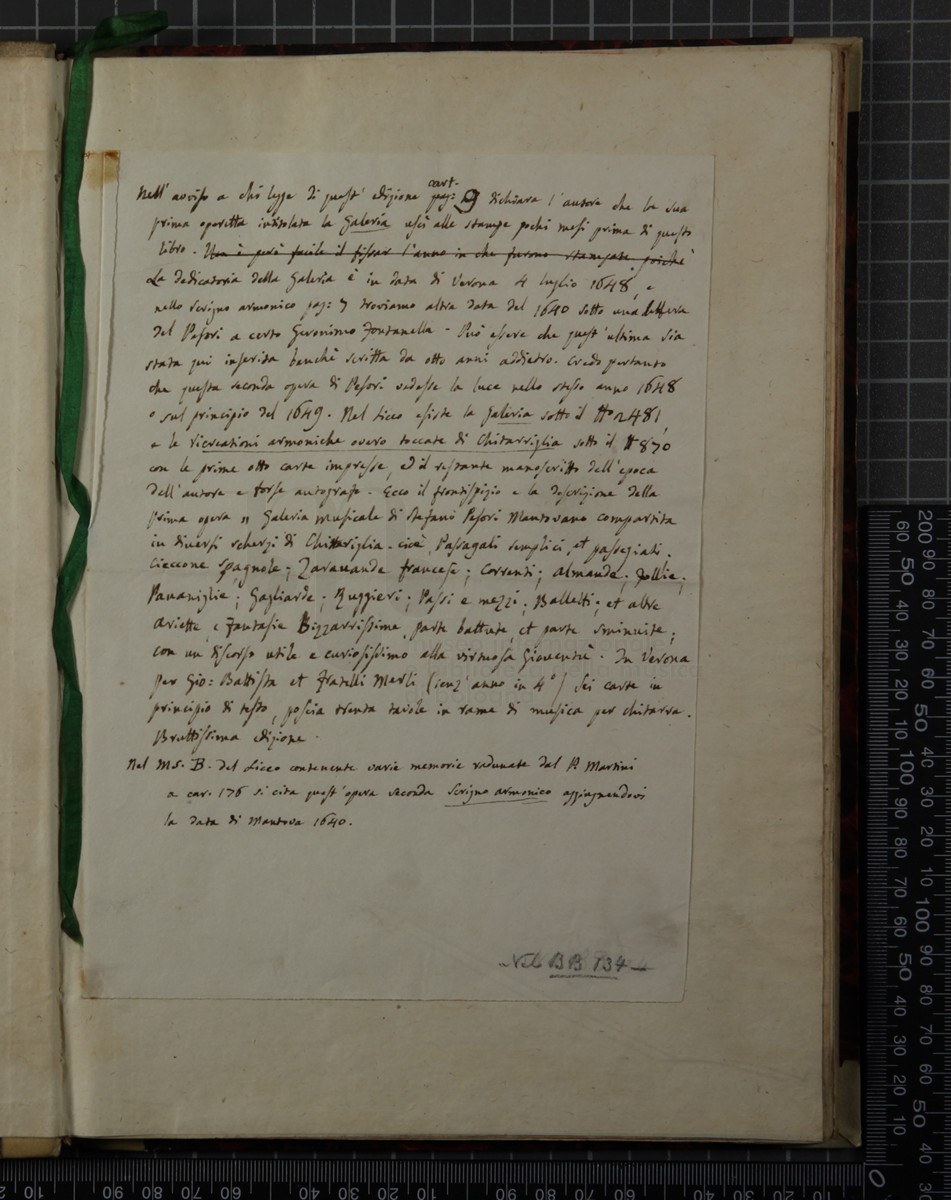 cart.
Nell' avviso a chi legge di quest' edizione pag: 9 dichiara l' autore che la sua
prima operetta intitolata la Galeria uscì alle stampe pochi mesi prima di questo
libro. Non è però facile il fissar l'anno in che furono stampate poiché
La dedicatoria della Galeria è in data di Verona 4 luglio 1648, e
nello scrigno armonico pag: 7 troviamo altra data del 1640 sotto una lettera
del Pesori a certo Geronimo Fontanella. Può essere che quest' ultima sia
stata qui inserita benchè scritta da otto anni addietro. Credo pertanto
che questa seconda opera di Pesori vedesse la luce nello stesso anno 1648
o sul principio del 1649. Nel Liceo esiste la Galeria sotto il
e le ricreationi armoniche overo toccate di Chitarriglia sotto il # 870
con le prime otto carte impresse, ed il restante manoscritto dell'epoca
dell'autore e forse autografo. Ecco il frontispizio e la descrizione della
prima opera " Galeria musicale di Stefano Pesori Mantovano compartita
in diversi scherzi di Chittariglia. cioè, Passagali semplici, et passegiati.
Ciaccone spagnole; Zaravande francese; Correnti; Almande; Follie;
Pavaniglie; Gagliarde; Ruggieri; Passi e mezzi; Balletti; et altre
Ariette e Fantasie Bizzarrissime, parte battute, et parte sminuite;
con un discorso utile e curiosissimo alla virtuosa Gioventù. In Verona
per Gio: Battista et Fratelli Merli (senz' anno in 4°) Sei carte in
principio di testo, poscia trenta tavole in rame di musica per chitarra.
Bruttissima edizione.
Nel Ms. B. del Liceo contenente varie memorie radunate dal P. Martini
a car. 176 si cita quest' opera seconda scrigno armonico aggiugnendovi
la data di Mantova 1640.
BB 134
200 90 80 70 60 50 40 30 20 10
100 90 80 70 60 50 40 30 20 10